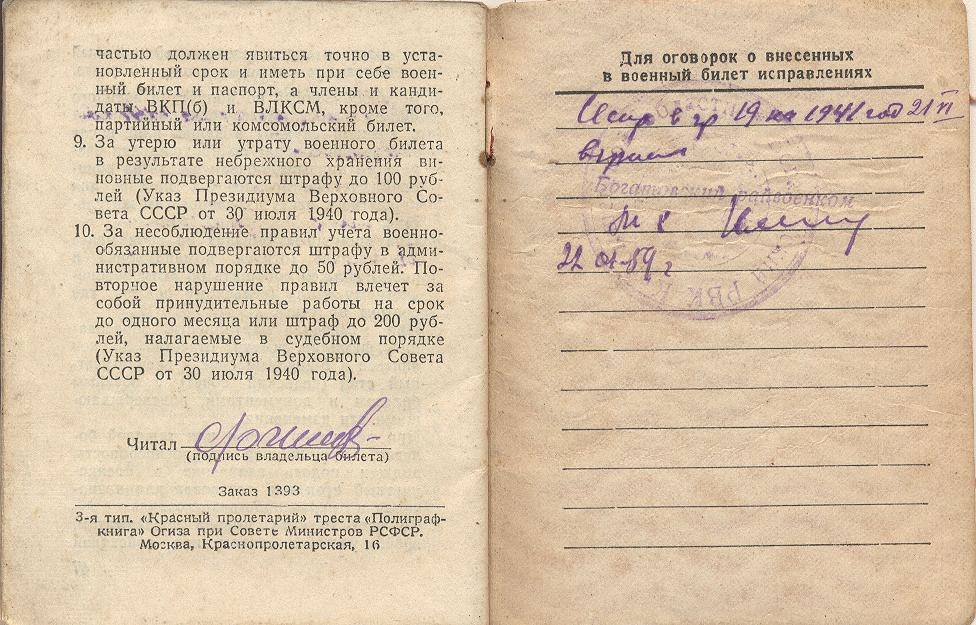 частью должен явиться точно в уста-
новленный срок и иметь при себе воен-
ный билет и паспорт, а члены и канди-
даты ВКП(б) и ВЛКСМ, кроме того,
партийный или комсомольский билет.
9. За утерю или утрату военного билета
в результате небрежного хранения ви-
новные подвергаются штрафу до 100 руб-
лей (Указ Президиума Верховного Со-
вета СССР от 30 июля 1940 года).
10. За несоблюдение правил учета военно-
обязанные подвергаются штрафу в адми-
нистративном порядке до 50 рублей. По-
вторное нарушение правил влечет за
собой принудительные работы на срок
до одного месяца или штраф до 200 руб-
лей, налагаемые в судебном порядке
(Указ Президиума Верховного Совета
СССР от 30 июля 1940 года).
Читал
(подпись владельца билета)
Заказ 1393
3-я тип. «Красный пролетарий» треста «Полиграф-
книга» Огиза при Совете Министров РСФСР.
Москва, Краснопролетарская, 16
Для оговорок о внесенных
в военный билет исправлениях
Испр в гр 19 на 1941 год 21 VI
верить
Богатовский райвоенком
РВК